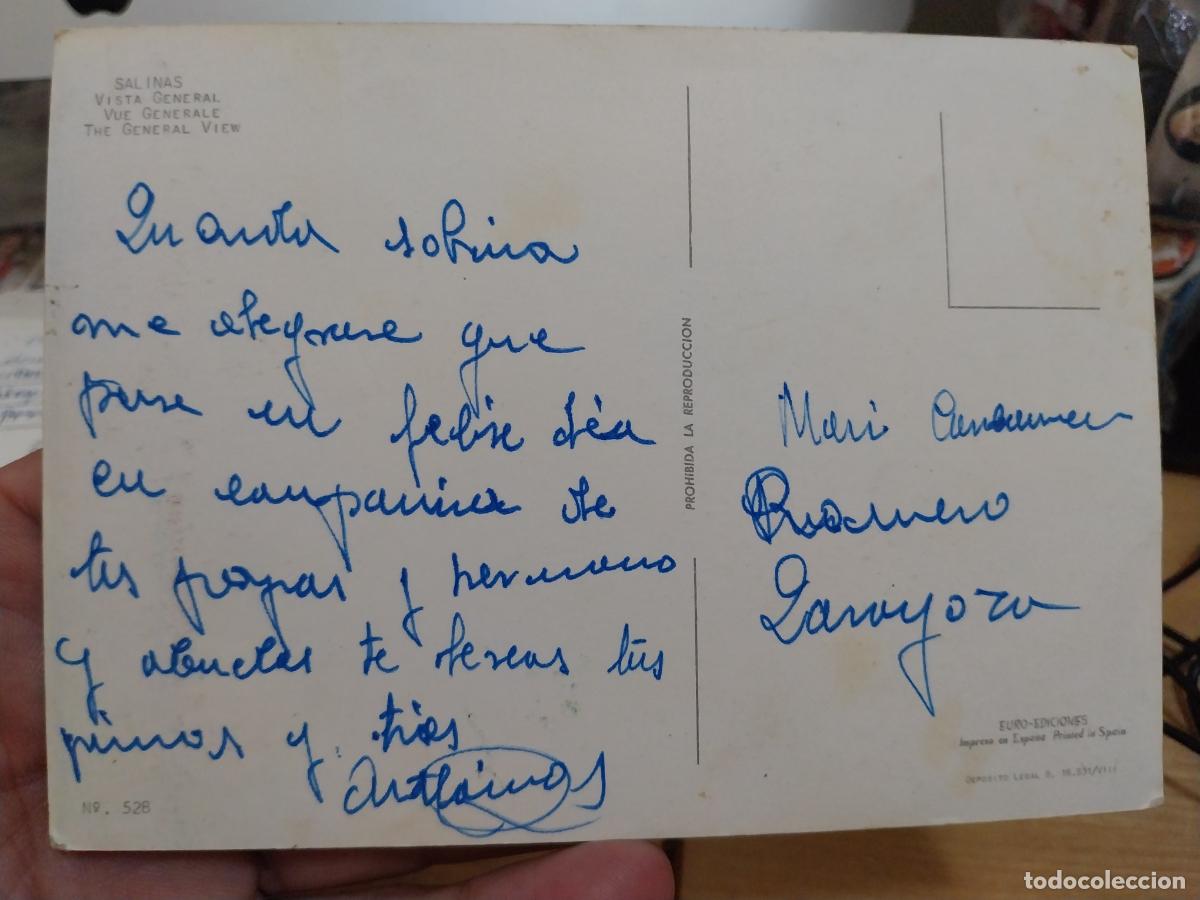 SALINAS
VISTA GENERAL
VUE GENERALE
THE GENERAL VIEW
sobrina
me alegrare que
pase un felise día
en compania de
tus papas y hermano
y abuelas te deseas tus
primos y tios
Nº. 528
PROHIBIDA LA REPRODUCCION
Mari
Romero
Zaragoza
EURO-EDICIONES
Impreso en España Printed in Spain
DEPOSITO LEGAL B. 16.531/VIII
todocoleccion